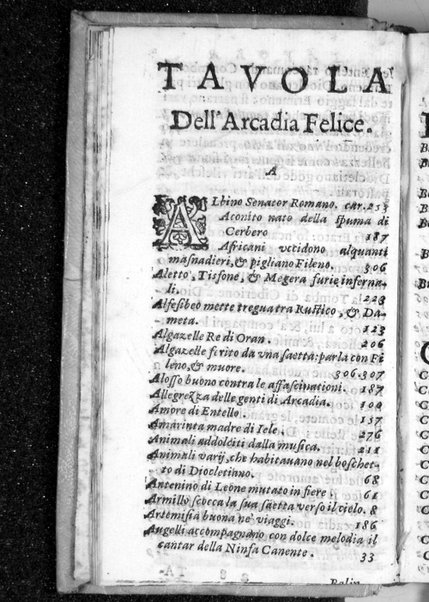 TAVOLA
Dell'Arcadia Felice.
A
ALbino Senator Romano. car. 253
Aconito nato della spuma di
Cerbero 187
Africani vccidono alquanti
masnadieri, & pigliano Fileno. 306
Aletto, Tisifone, & Megera furie inferna-
li. 223
Alfesibeo mette tregua tra Rustico, & Da-
meta. 123
Algazelle Re di Oran. 206
Algazelle ferito da vna saetta: parla con Fi
leno, & muore. 306.307
Alosso buono contra le affascinationi. 187
Allegrezza delle genti di Arcadia. 100
Amore di Entello. 157
Amarinta madre di Iele. 276
Animali addolciti dalla musica. 211
Animali varij, che habitauano nel boschet-
to di Diocletiano. 68
Antenino di Leone mutato in fiere. 61
Armillo scocca la sua saetta verso il cielo. 8
Artemisia buona ne' viaggi. 186
Augelli accompagnano con dolce melodia il
cantar della Ninfa Canente. 33